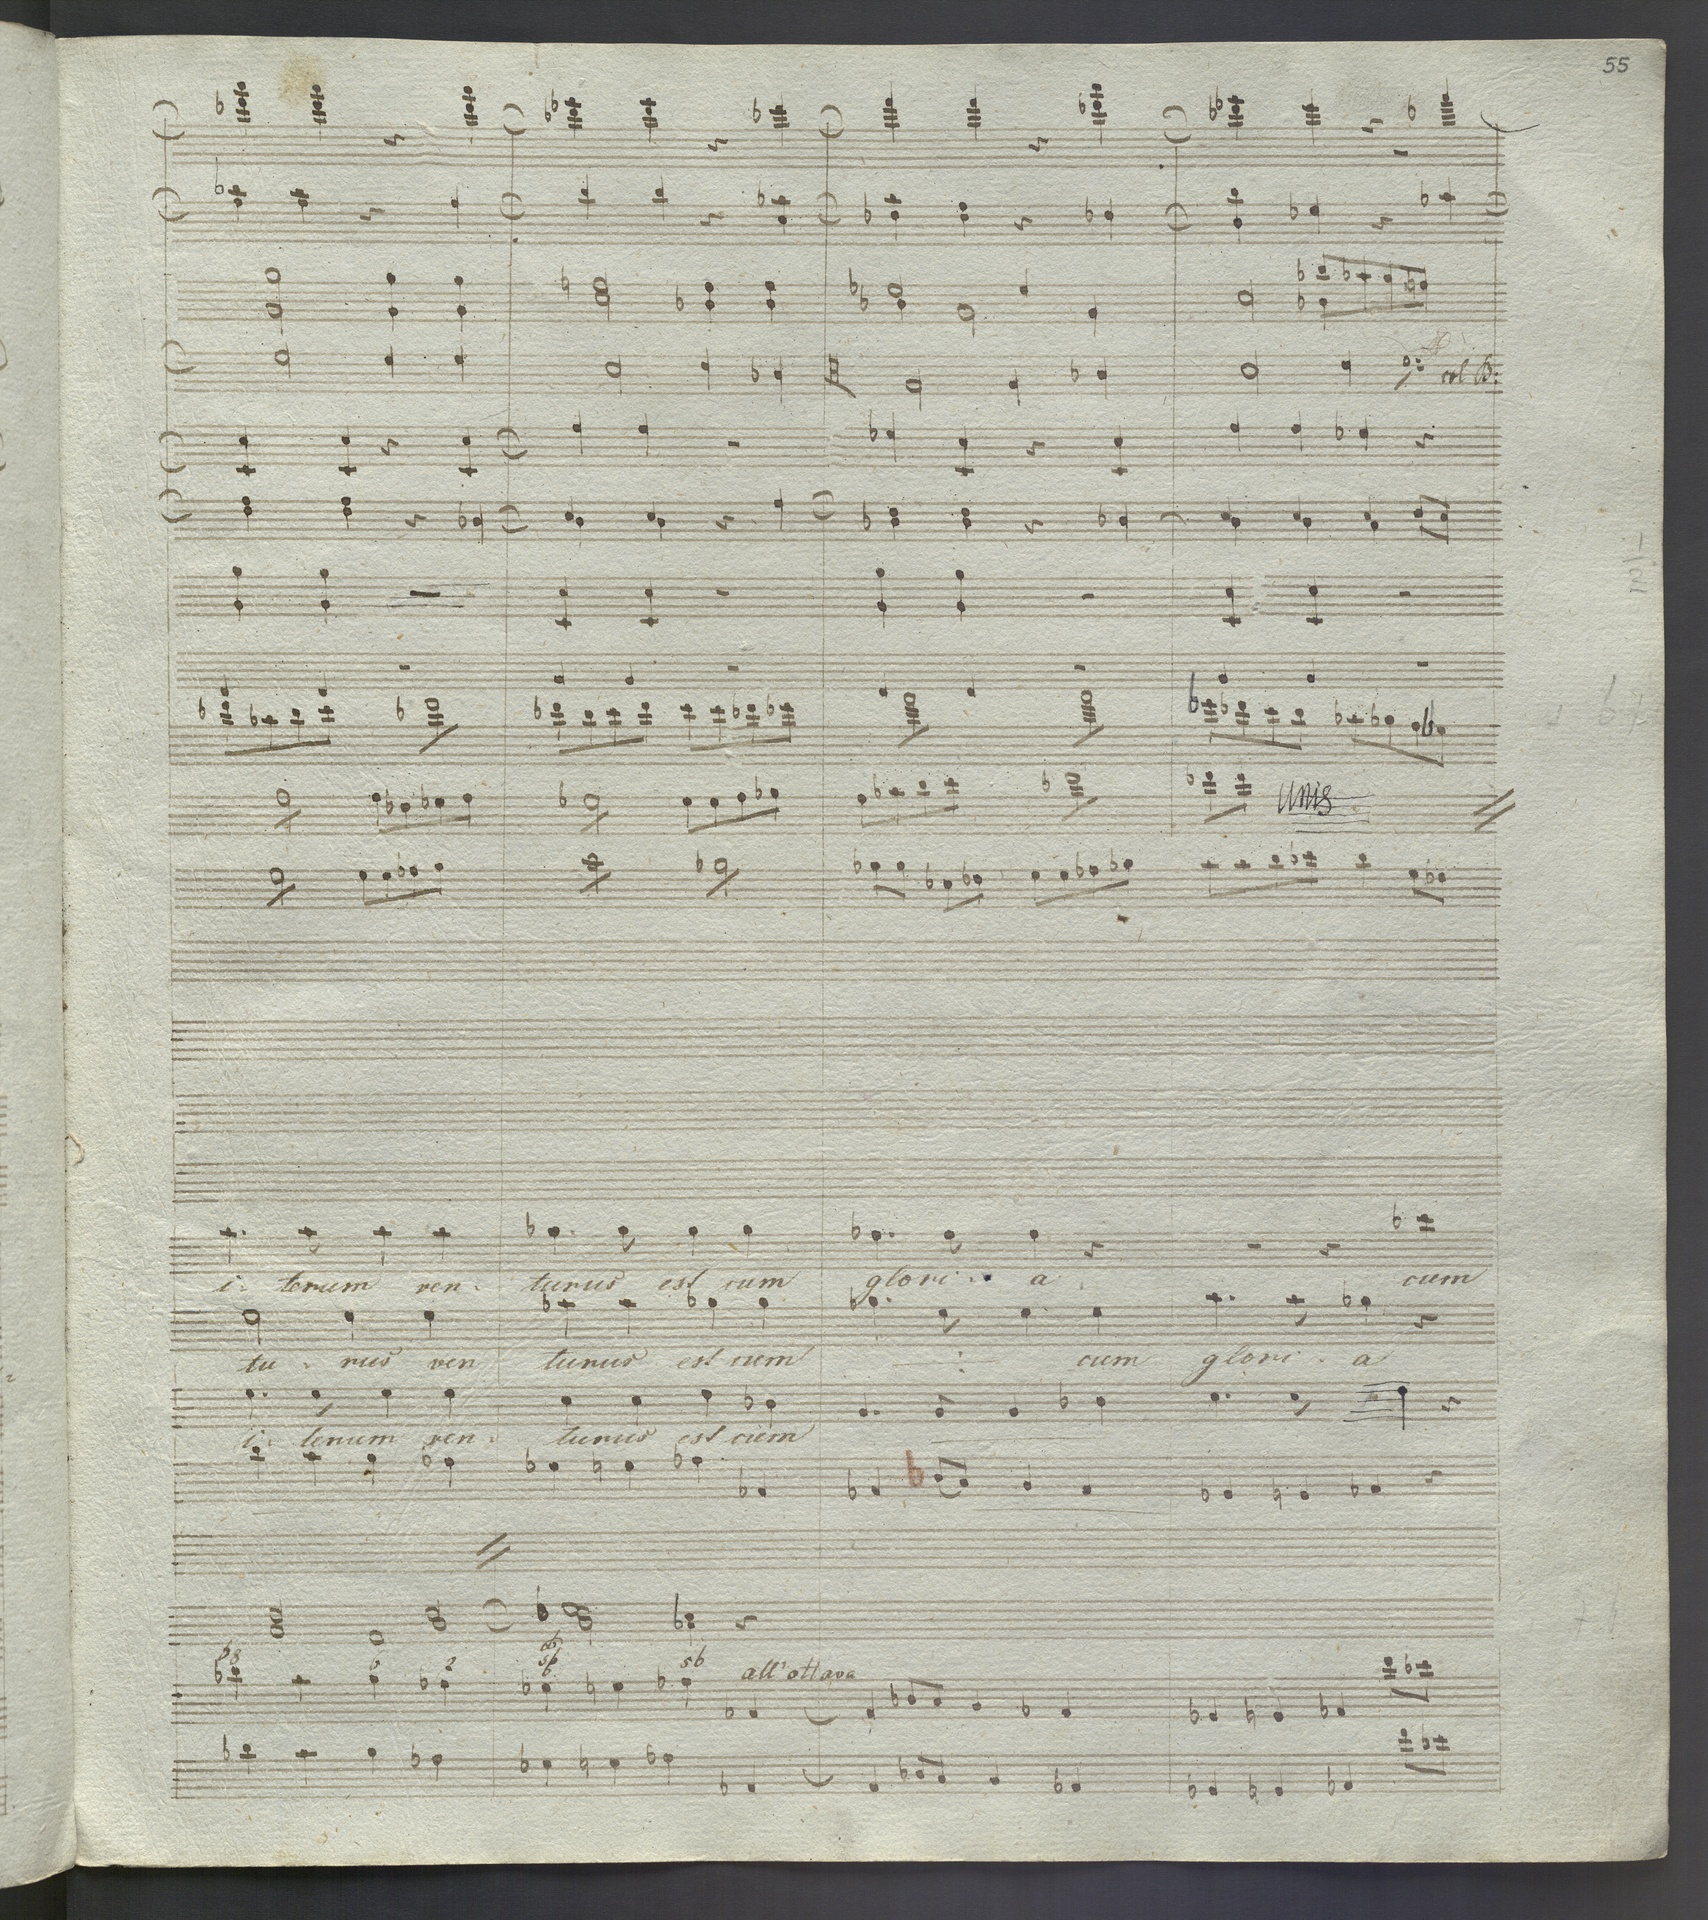 55
col B:
Unis
i. terum ven. turus est cum glori. a cum
tu. rus ven turus est cum : cum glori. a
i. terum ven. turus est cum
all'ottava